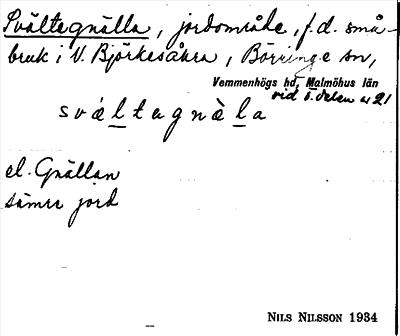 Svältegnälla, jordområde, f.d. små-
bruk i V. Björkesåkra, Börringe sn,
Vemmenhögs hd, Malmöhus län
vid ö. delen av 21
svältagnäla
el. Gnällan
sämre jord
NILS NILSSON 1934